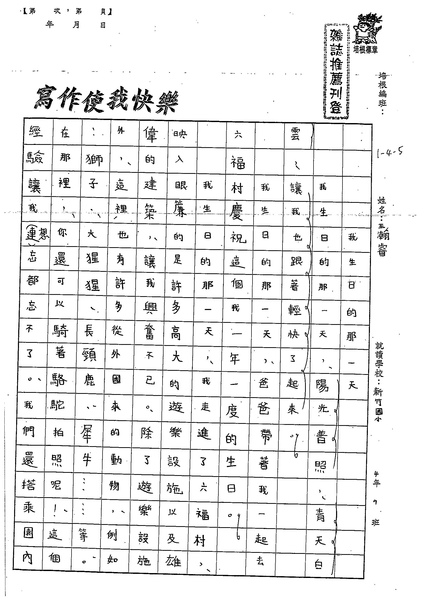 【第　次，第　頁】
年　月　日
培根標章
雜誌推薦刊登
寫作使我快樂
培根編班：
1-4-5
姓名：王瀚霄
就讀學校：新竹國小
4年9班
我的生日的那一天
我生日的那一天，陽光普照，青天白
雲、讓我也跟著輕快了起來。
爸爸帶著我一起去
六福村慶祝這個一年一度的生日。
我生日的那一天，我走進了六福村，
映入眼簾的是許多高大的遊樂設施以及雄
偉的建築，讓我興奮不已。除了遊樂設施
外，這裡也有許多從外國來的動物，例如
：獅子、大猩猩、長頸鹿、犀牛……等。
在那裡，你還可以騎著駱駝拍照呢！這個
經驗讓我連想忘都忘不了。我們還搭乘園內